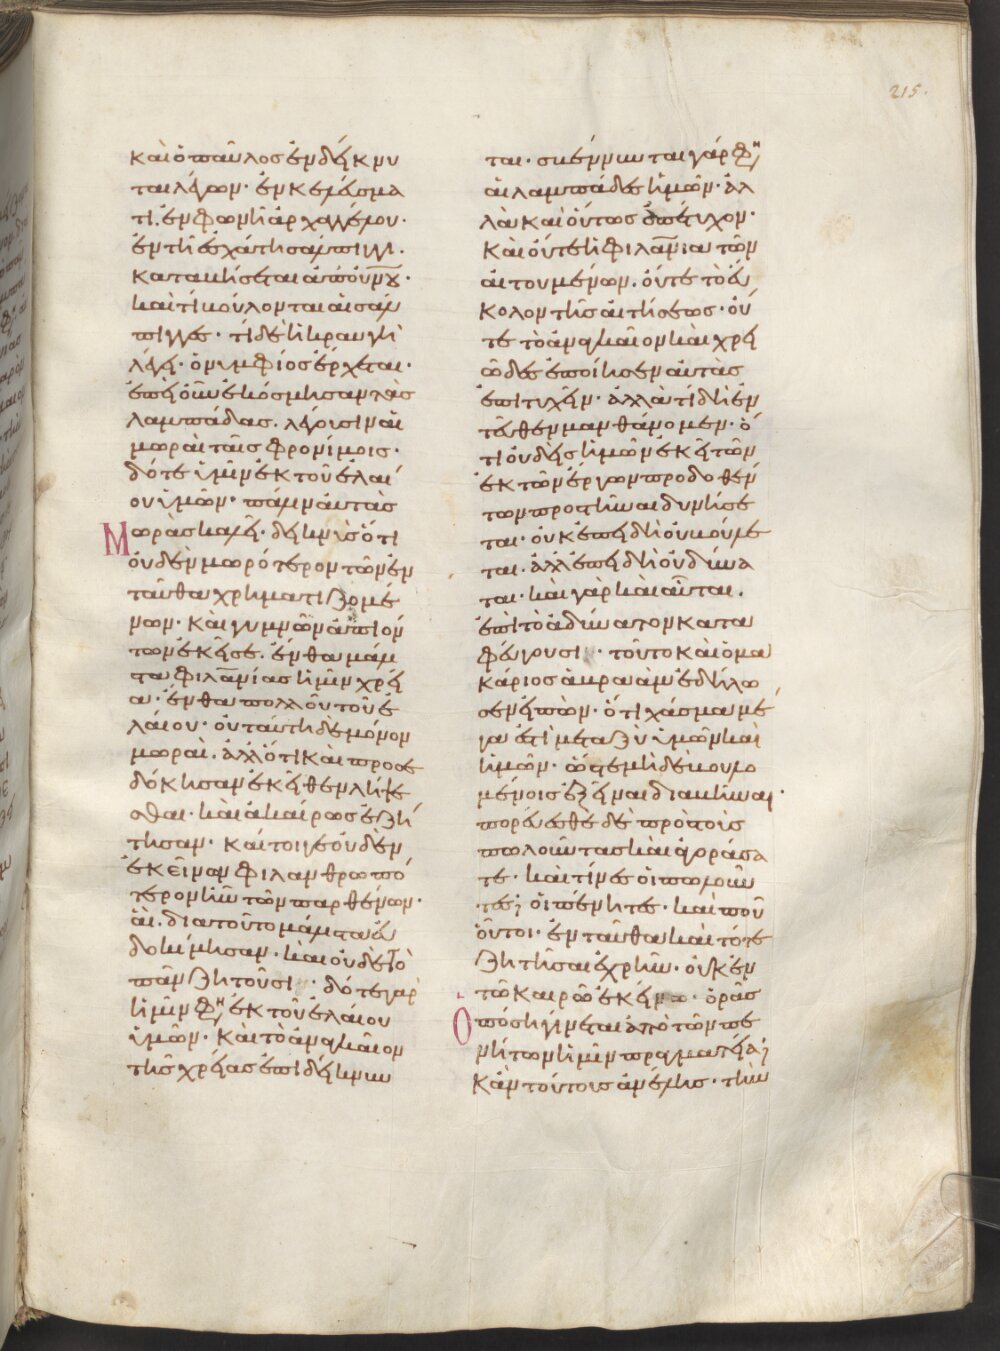 215.
καὶ ὁ παῦλος ἐνδείκνυ
ται λέγων· ἐν κελεύσμα
τι. ἐν φωνῆ ἀρχαγγέλου.
ἐν τῆ ἐσχάτη σάλπιγγι.
καταβήσεται ἀπ' οὐνοῦ·
καὶ τί βούλονται αἱ σάλ
πιγγες· τί δὲ ἡ κραυγὴ
λέγει· ὁ νυμφίος ἔρχεται·
ἐπεὶ οὖν ἐκόσμησαν τὰς
λαμπάδας. λέγουσιν αἱ
μωραὶ ταῖς φρονίμοις·
δότε ἡμῖν ἐκ τοῦ ἐλαί
ου ὑμῶν· πάλιν αὐτὰς
μωρὰς καλεῖ· δεικνὺς ὅτι
οὐδὲν μωρότερον τῶν ἐν
ταῦθα χρηματιζομέ
νων· καὶ γυμνῶν ἀπιόν
των ἐκεῖσε. ἔνθα μάλισ
τα φιλανίας ἡμῖν χρεί
α· ἔνθα πολλοῦ τοῦ ἐ
λαίου· οὐ ταύτη δὲ μόνον
μωραὶ. ἀλλ' ὅτι καὶ προσε
δόκησαν ἐκεῖθεν λήψε
σθαι. καὶ ἀκαίρως ἐζή
τησαν· καίτοιγε οὐδὲν
ἐκείνων φιλανθρωπό
τερον ἦν τῶν παρθένων·
αἳ. διὰ τοῦτο μάλιστα εὐ
δοκίμησαν· καὶ οὐδὲ τὸ
πᾶν ζητοῦσι· δότε γὰρ
ἡμῖν φη ἐκ τοῦ ἐλαίου
ὑμῶν· καὶ τὸ ἀναγκαῖον
τῆς χρείας ἐπιδείκνυν
ται· σβέννυνται γάρ φη
αἱ λαμπάδες ἡμῶν· ἀλ
λὰ καὶ οὕτως ἀπέτυχον·
καὶ οὔτε ἡ φιλανια τῶν
αἰτουμένων. οὔτε τὸ εὔ
κολον τῆς αἰτήσεως· οὔ
τε τὸ ἀναγκαῖον καὶ χρει
ῶδες ἐποίησεν αὐτὰς
ἐπιτυχεῖν· ἀλλὰ τί δὴ ἐν
τεῦθεν μανθάνομεν· ὅ
τι οὐδεὶς ἡμῶν ἐκεῖ τῶν
ἐκ τῶν ἔργων προδοθέν
των προστῆναι δυνήσε
ται· οὐκ ἐπειδὴ οὐ βούλε
ται. ἀλλ' ἐπειδὴ οὐ δύνα
ται· καὶ γὰρ καὶ αὗται.
ἐπὶ τὸ ἀδύνατον κατα
φεύγουσι· τοῦτο καὶ ὁ μα
κάριος ἀβραὰμ ἐδήλω
σεν εἰπὼν· ὅτι χάσμα μέ
γα ἐστὶ μεταξὺ ὑμῶν καὶ
ἡμῶν· ὥστε μὴ δὲ βουλο
μένοις ἐξεῖναι διαβῆναι·
πορεύεσθε δὲ πρὸς τοὺς
πωλοῦντας καὶ ἀγοράσα
τε· καὶ τίνες οἱ πωλοῦν
τες; οἱ πένητες· καὶ ποῦ
οὗτοι· ἐνταῦθα καὶ τότε
ζητῆσαι ἐχρῆν· οὐκ ἐν
τῶ καιρῶ ἐκείνω· ὁρᾶς
πόση γίνεται ἀπὸ τῶν πε
νήτων ἡμῖν πραγματεία;
κἂν τούτους ἀνέλης· τὴν